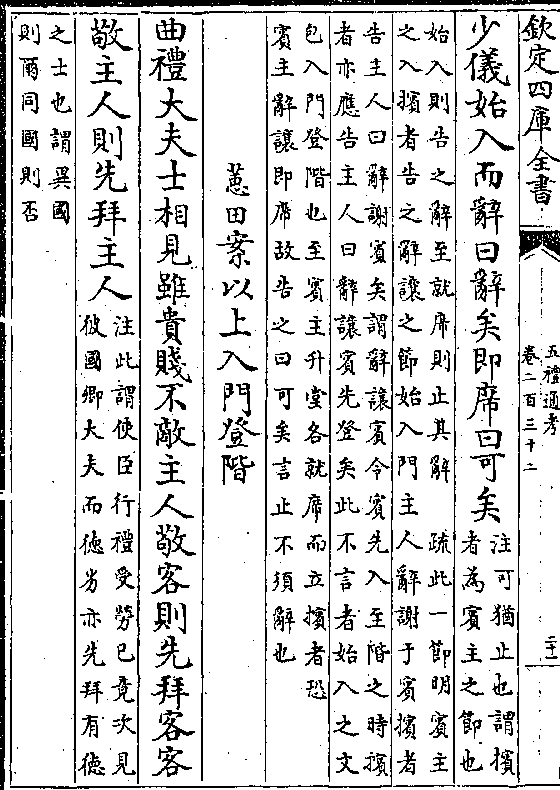 欽定四庫全書
五禮通考
卷二百三十二
二十一
少儀始入而辭曰辭矣即席曰可矣
注可猶止也謂擯
者為賓主之節也
始入則告之辭至就席則止其辭　疏此一節明賓主
之入擯者告之辭讓之節始入門主人辭謝于賓擯者
告主人曰辭謝賓矣謂辭讓賓令賓先入至階之時擯
者亦應告主人曰辭讓賓先登矣此不言者始入之文
包入門登階也至賓主升堂各就席而立擯者恐
賓主辭讓即席故告之曰可矣言止不須辭也
蕙田案以上入門登階
曲禮大夫士相見雖貴賤不敵主人敬客則先拜客客
敬主人則先拜主人
注此謂使臣行禮受勞已竟次見
彼國卿大夫而德劣亦先拜有德
之士也謂異國
則爾同國則否